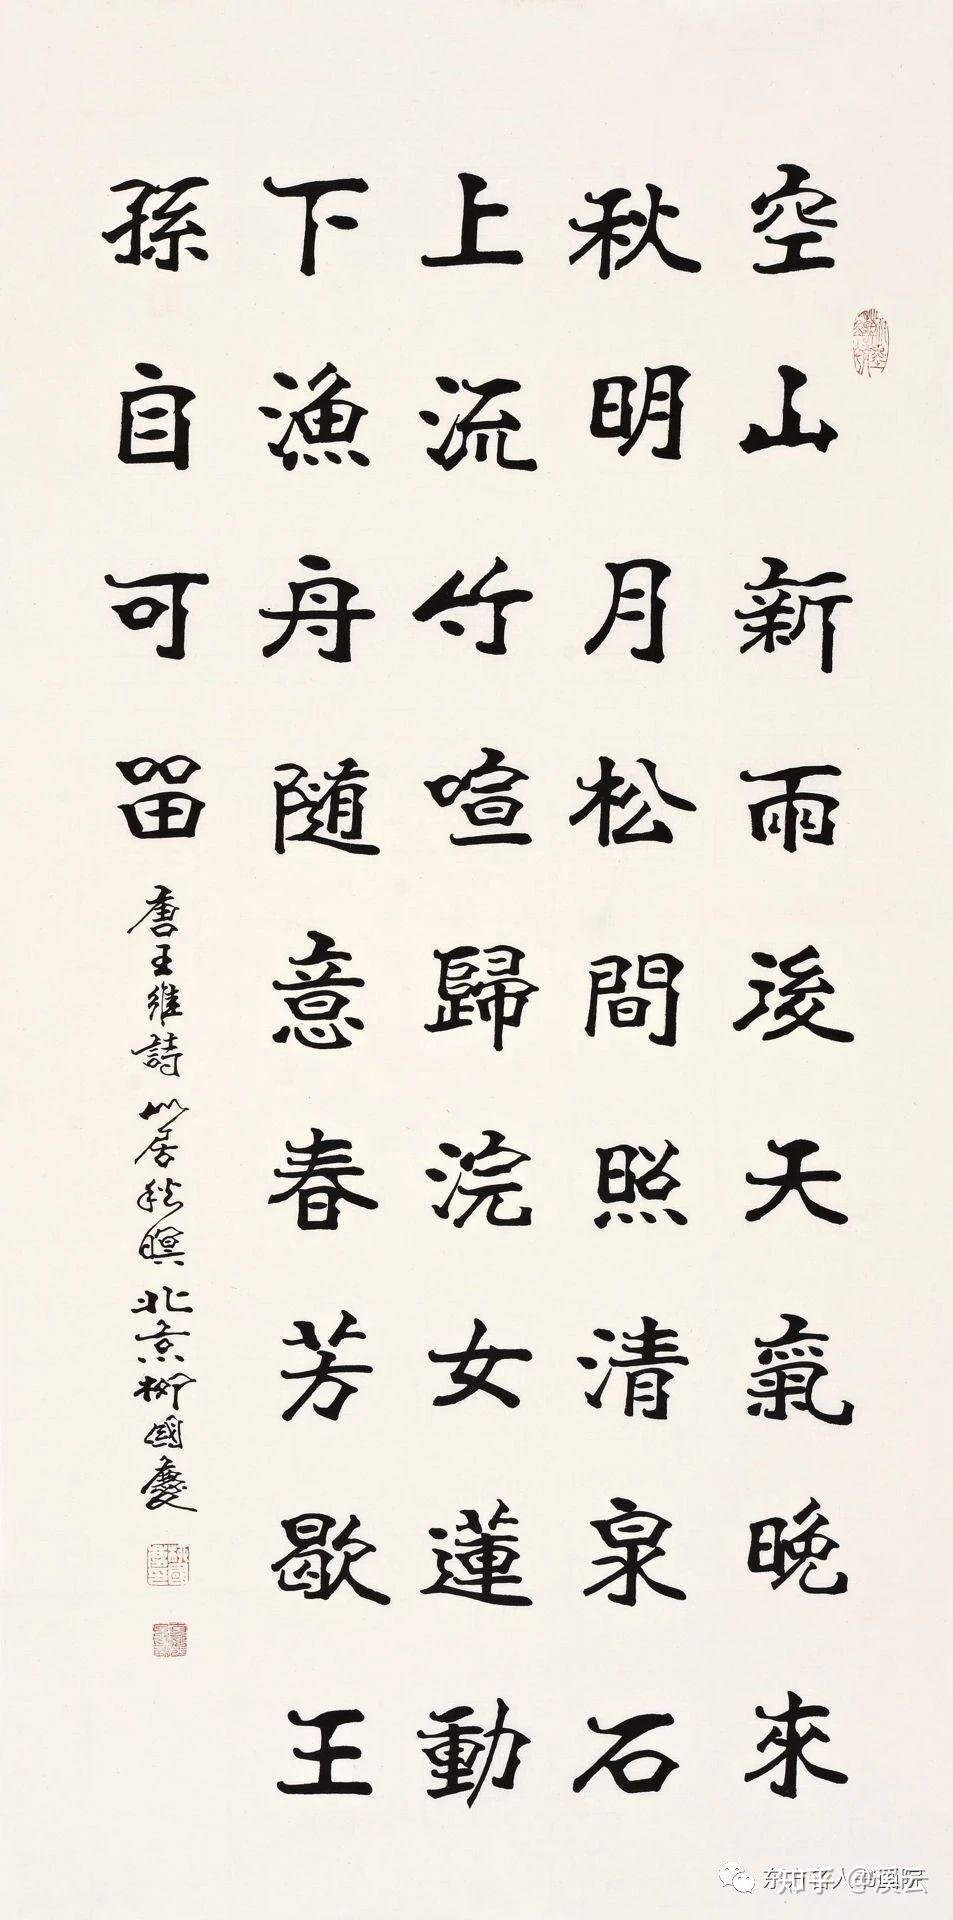 空山新雨後天氣晚來
秋明月松間照清泉石
上流竹喧歸浣女蓮動
下漁舟隨意春芳歇王
孫自可留
唐王維詩山居秋暝北京柳國慶